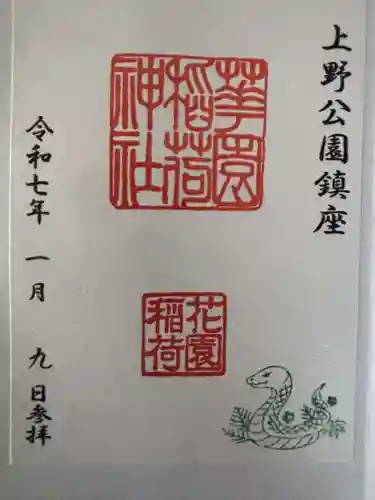 上野公園鎮座
華園
稲荷
神社
花園
稲荷
令和七年 一月 九日参拝